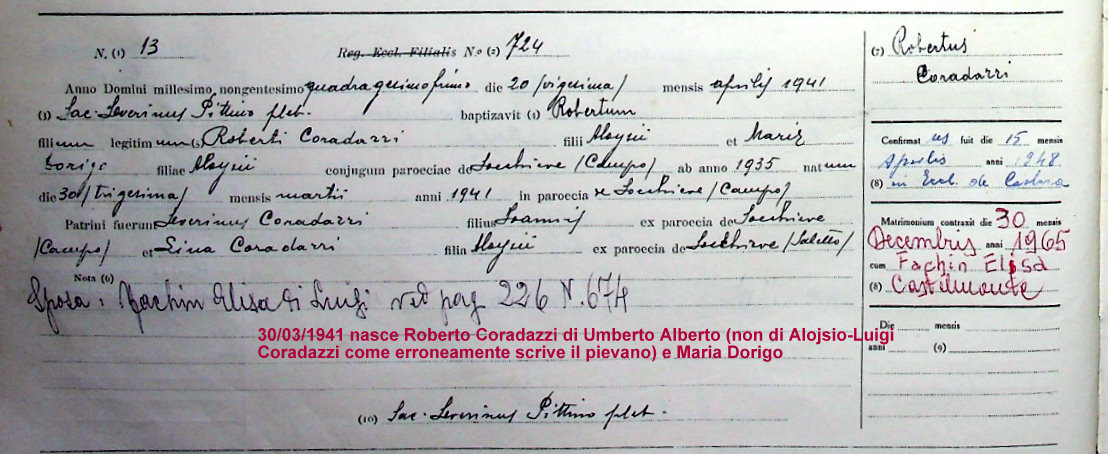 N. (1) 13 Reg. Eccl. Filialis N.o (2) 724
Anno Domini millesimo nongentesimo quadragesimoprimo die 20 /vigesima/ mensis aprilis 1941
(3) Sac. Severinus Pittino pleb. baptizavit (4) Robertum
filium legitimum (5) Roberti Coradazzi filii Aloysii et Mariæ
Dorigo filiae Aloysii conjugum parocciae de Socchieve /Campo/ ab anno 1935 natum
die 30 /trigesima/ mensis martii anni 1941 in paroccia de Socchieve /Campo/
Patrini fuerunt Severinus Coradazzi filius Joannis ex paroccia de Socchieve
/Campo/ et Lina Coradazzi filia Aloysii ex paroccia de Socchieve /Saletto/
Nota (6)
Sposa: Fachin Elisa di Luigi ved pag 226 N. 674
30/03/1941 nasce Roberto Coradazzi di Umberto Alberto (non di Alojsio-Luigi
Coradazzi come erroneamente scrive il pievano) e Maria Dorigo
(10) Sac. Severinus Pittino pleb.
(7) Robertus
Coradazzi
Confirmatus fuit die 15 mensis
Aprilis anni 1248
(8) in Eccl. de
Matrimonium contraxit die 30 mensis
Decembris anni 1965
cum Fachin Elisa
(8) Castelmonte
Die mensis
anni (9)